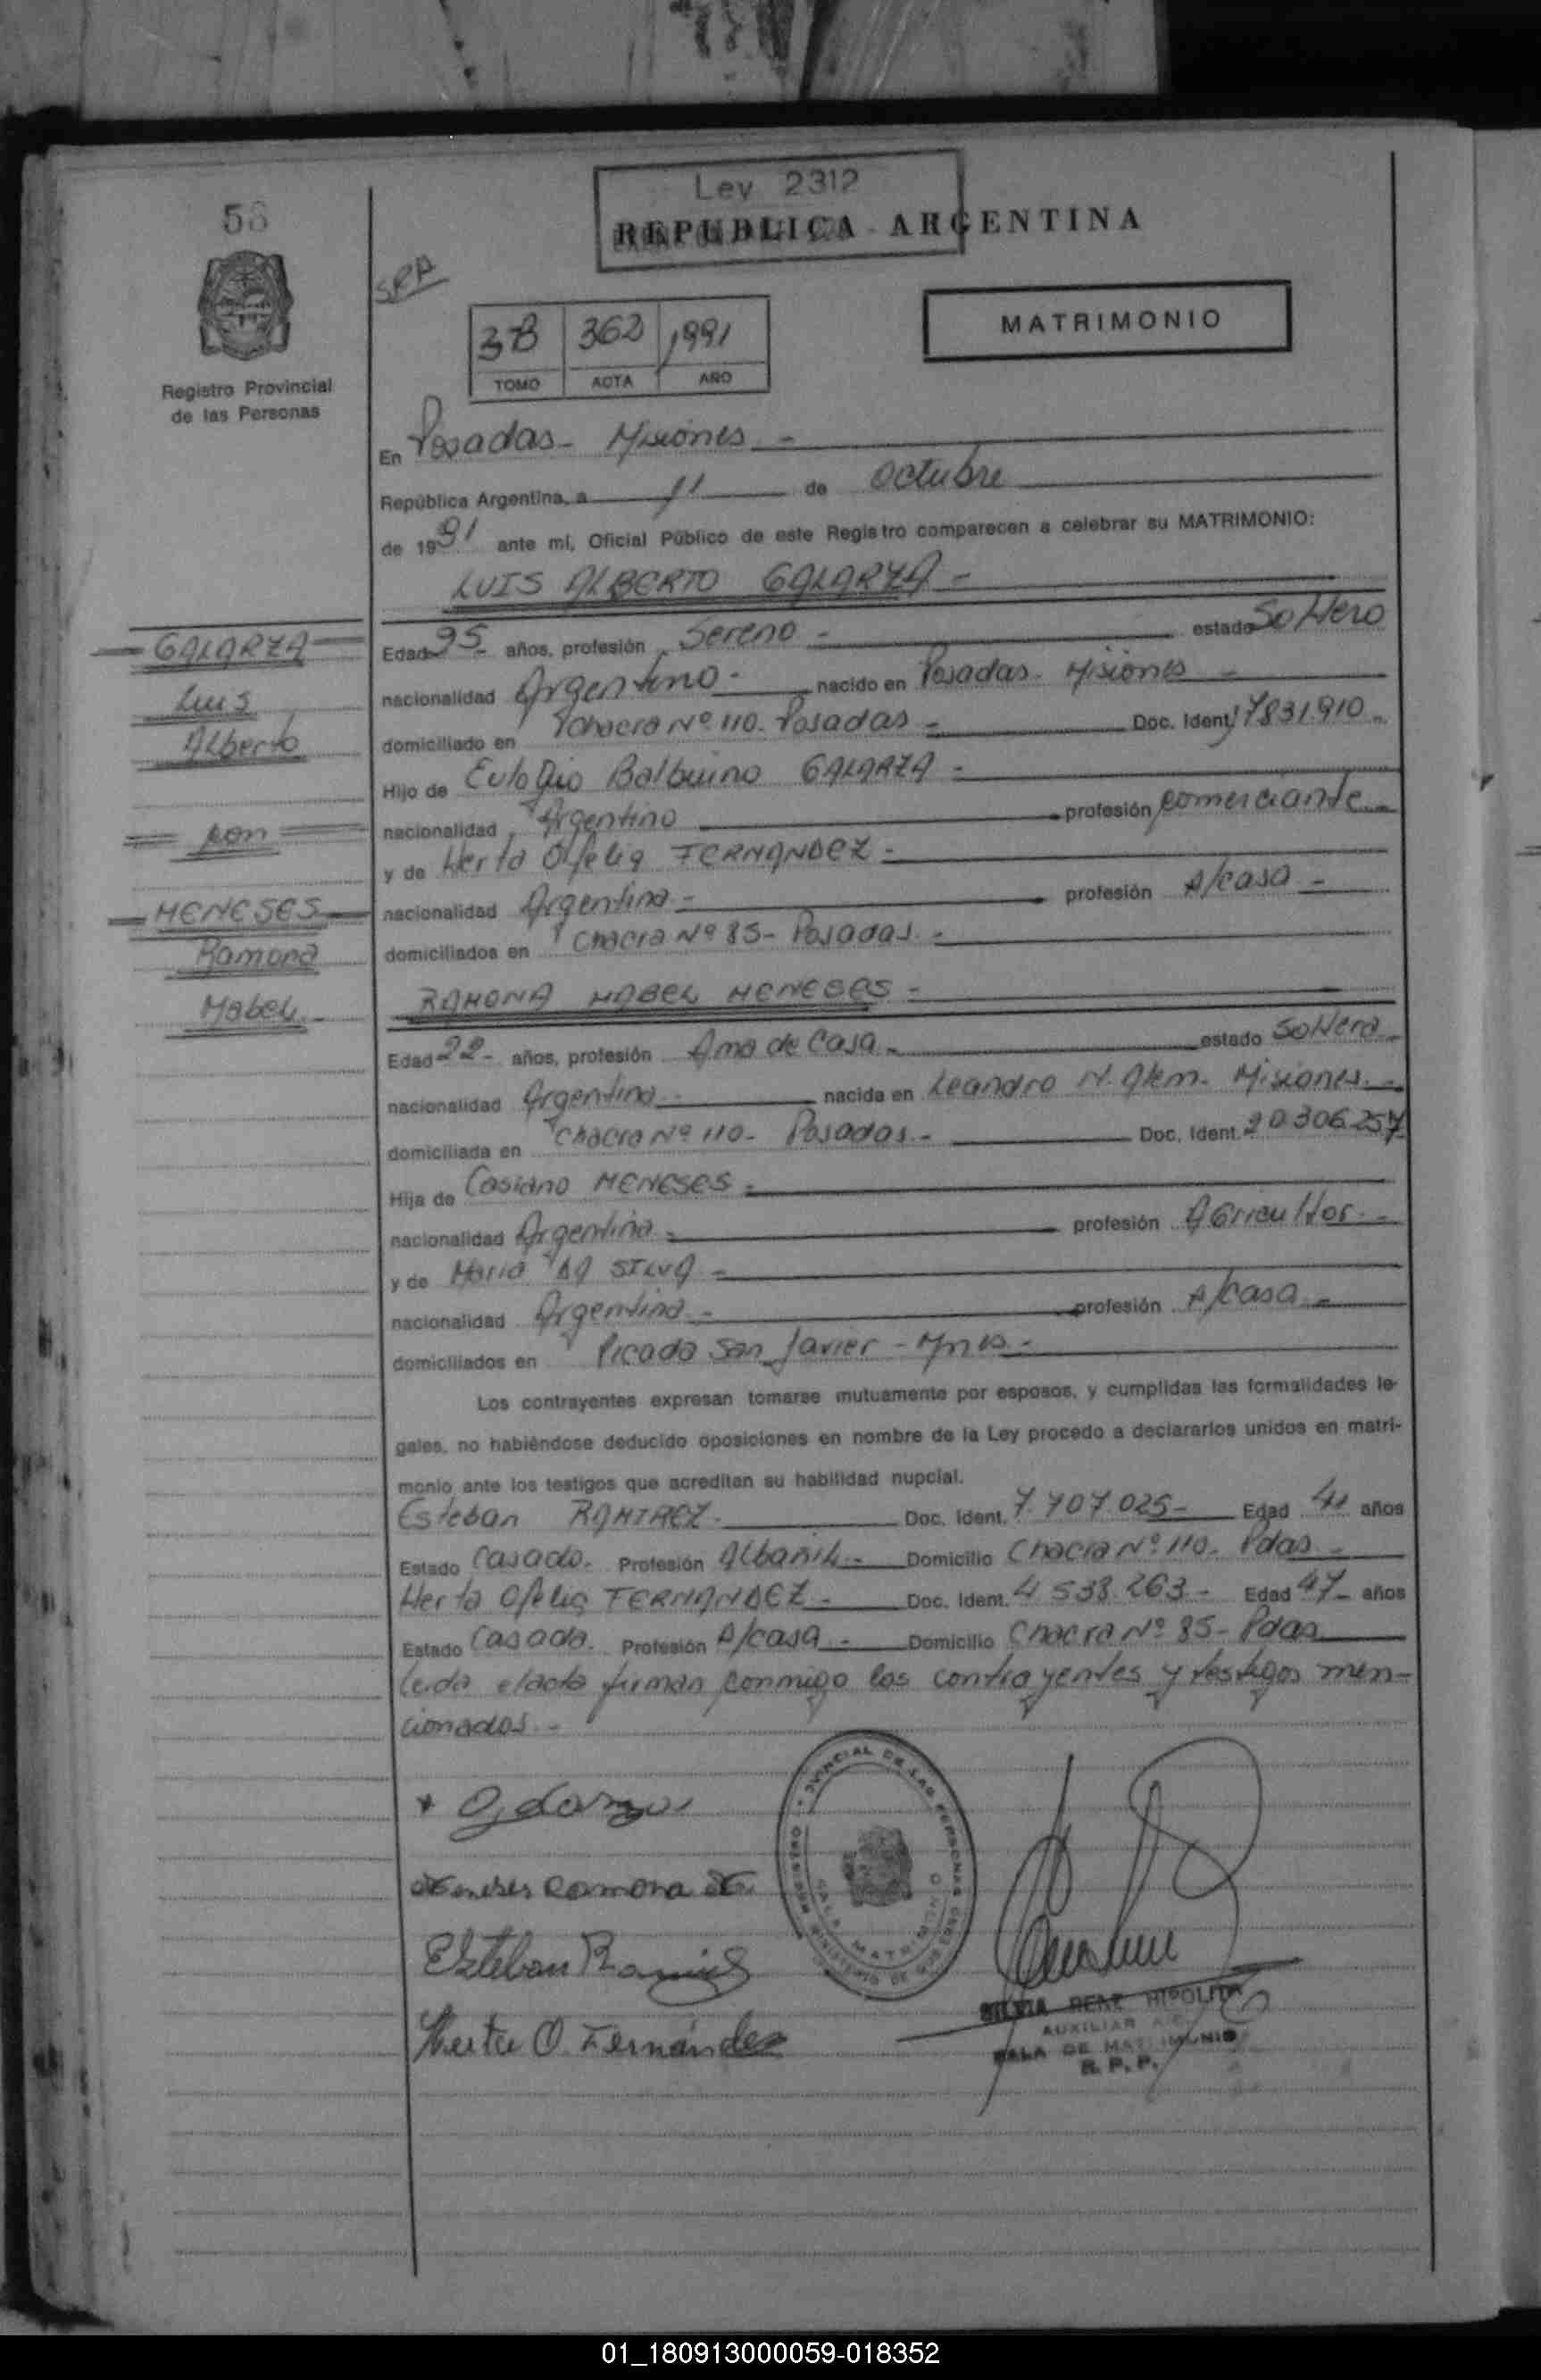 Ley 2312
REPUBLICA ARGENTINA
SRA
Registro Provincial
de las Personas
3-B 362 1991
TOMO ACTA AÑO
MATRIMONIO
En Posadas - Misiones -
República Argentina, a 11 de octubre
de 1991 ante mí, Oficial Público de este Registro comparecen a celebrar su MATRIMONIO:
LUIS ALBERTO GALARZA -
GALARZA
Luis
Alberto
con
MENESES
Ramona
Mabel.-
Edad años, profesión Sereno - estado Soltero
nacionalidad Argentino - nacido en Posadas - Misiones -
domiciliado en Chacra Nº 110. Posadas - Doc. Ident. 17831.910 -
Hijo de Eulogio Balbuino GALARZA -
nacionalidad Argentino profesión comerciante -
y de Herta Ofelia FERNANDEZ -
nacionalidad Argentina - profesión A/casa -
domiciliados en Chacra Nº 85 - Posadas. -
RAMONA MABEL MENESES -
Edad 22 - años, profesión Ama de Casa - estado Soltera
nacionalidad Argentina - nacida en Leandro N. Alem. Misiones. -
domiciliada en Chacra Nº 110 - Posadas. - Doc. Ident. 20.306.257
Hija de Casiano MENESES -
nacionalidad Argentina - profesión AGricultor. -
y de Maria DA SILVA -
nacionalidad Argentina - profesión A/casa -
domiciliados en Picada San Javier - Mnes -
Los contrayentes expresan tomarse mutuamente por esposos, y cumplidas las formalidades le-
gales, no habiéndose deducido oposiciones en nombre de la Ley procedo a declararlos unidos en matri-
monio ante los testigos que acreditan su habilidad nupcial.
Esteban RAMIREZ - Doc. Ident. 7.707.025 - Edad años
Estado Casado. Profesión Albañil - Domicilio Chacra Nº 110. Pdas -
Herta Ofelia FERNANDEZ - Doc. Ident. 4.538.263 - Edad 47 - años
Estado Casada. Profesión A/casa - Domicilio Chacra Nº 85 - Pdas
Leida el acta firman conmigo los contrayentes y testigos men-
cionados. -
Galarza
Meneses Ramona M
Esteban Ramirez
Herta O. Fernández
SILVIA RENE HIPOLITA
AUXILIAR
SALA DE MATRIMONIO
R. P. P.
01_180913000059-018352